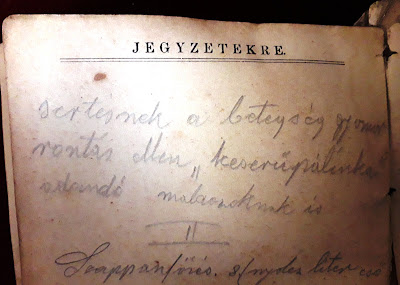 JEGYZETEKRE.
sertésnek a betegség gyomor
rontás ellen „keserűpálinka"
adandó malacoknak is
II
Szappan/főzés. 8/nyolcz liter eső